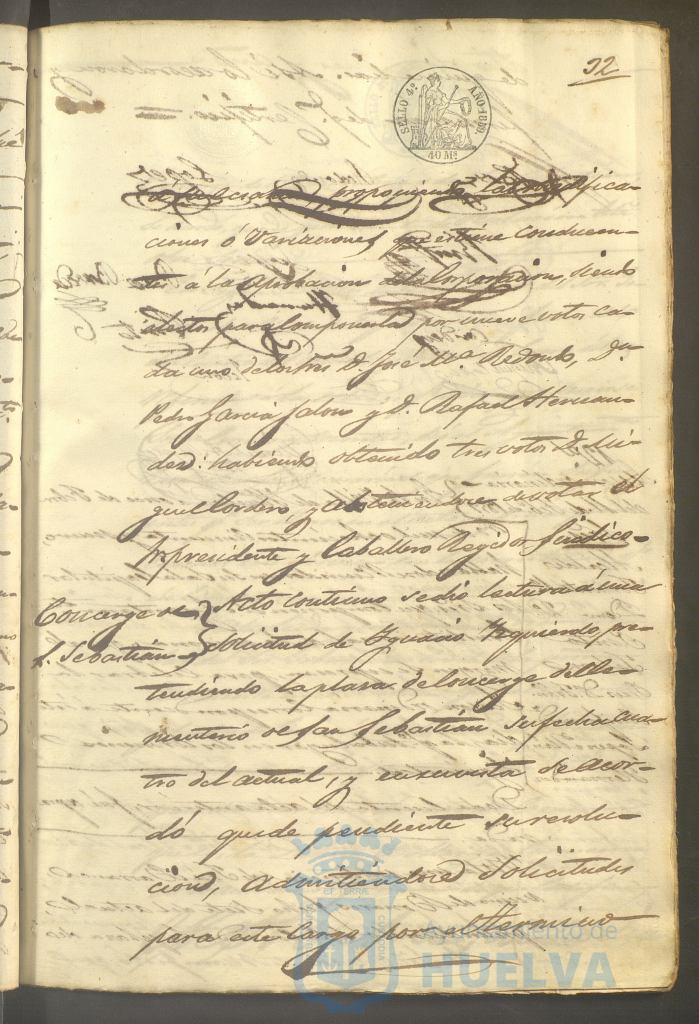 32
SELLO 4º AÑO 1869
40 Ms
proponiendo las modifica-
ciones ó variaciones que estime conducen-
tes á la aprobacion de la Corporacion, siendo
electos para componerla por nueve votos ca-
da uno de los Sres D. José Mª Redondo, Dn
Pedro Garcia Jalon y D. Rafael Hernan-
dez: habiendo obtenido tres votos D. Mi-
guel Cordero y absteniendose de votar el
Sr presidente y Caballero Regidor Sindico-
Concerge de
S. Sebastián
Acto continuo se dió lectura á una
solicitud de Ygnacio Yzquierdo, pre-
tendiendo la plaza de Concerge del Ce-
menterio de San Sebastián su fecha cua-
tro del actual, y en su vista se acor-
dó quede pendiente su resolu-
cion, admitiendose solicitudes
para este cargo por el termino
Ayuntamiento de
HUELVA